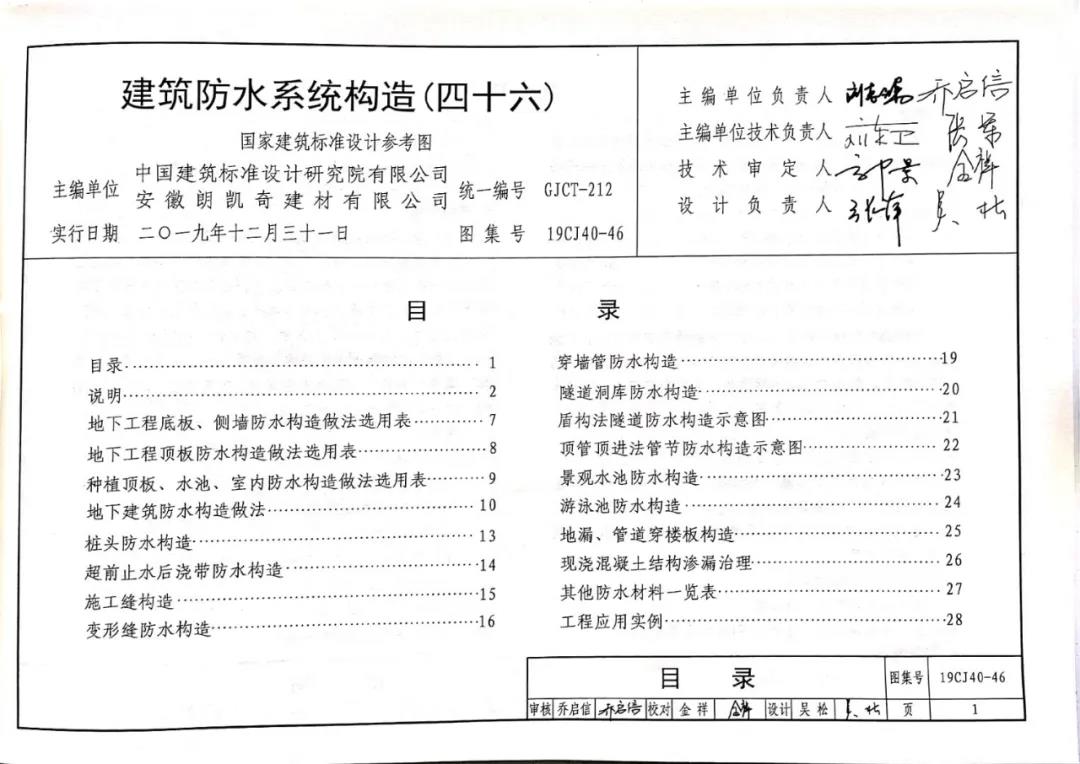 建筑防水系统构造(四十六)
国家建筑标准设计参考图
主编单位 中国建筑标准设计研究院有限公司
安徽朗凯奇建材有限公司
统一编号 GJCT-212
实行日期 二〇一九年十二月三十一日 图集号 19CJ40-46
主编单位负责人 乔启信
主编单位技术负责人
技术审定人 金祥
设计负责人 吴松
目 录
目录 1
说明 2
地下工程底板、侧墙防水构造做法选用表 7
地下工程顶板防水构造做法选用表 8
种植顶板、水池、室内防水构造做法选用表 9
地下建筑防水构造做法 10
桩头防水构造 13
超前止水后浇带防水构造 14
施工缝构造 15
变形缝防水构造 16
穿墙管防水构造 19
隧道洞库防水构造 20
盾构法隧道防水构造示意图 21
顶管顶进法管节防水构造示意图 22
景观水池防水构造 23
游泳池防水构造 24
地漏、管道穿楼板构造 25
现浇混凝土结构渗漏治理 26
其他防水材料一览表 27
工程应用实例 28
目 录 图集号 19CJ40-46
审核 乔启信 乔启信 校对 金祥 金祥 设计 吴松 吴松 页 1